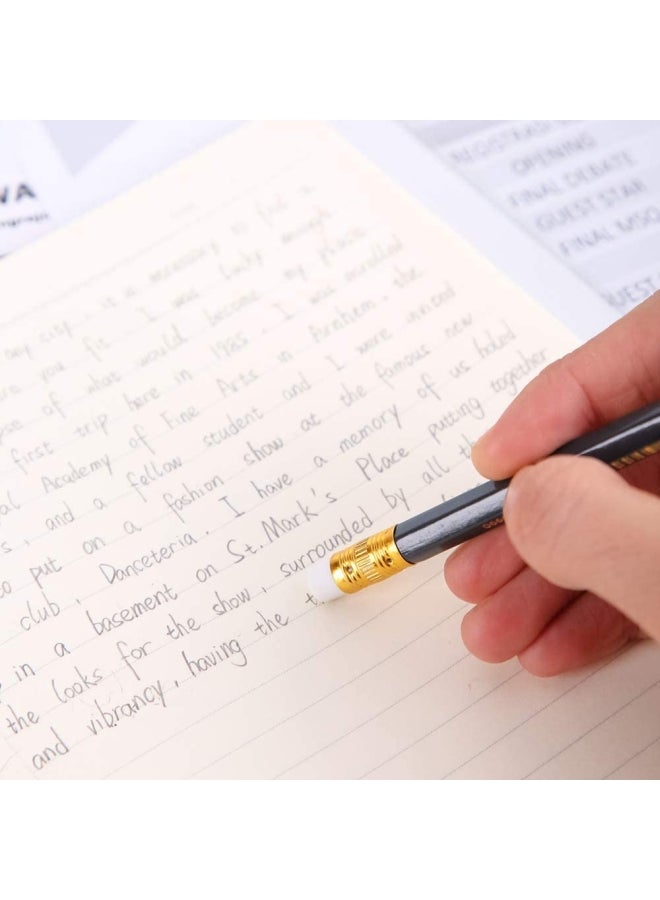 any city. it is necessary to find a
ere you fit. I was lucky enough
pse of what would become my place
first trip here in 1985. I was enrolled
al Academy of Fine Arts in Arnhem, the
s, and a fellow student and I were invited
to put on a fashion show at the famous new
club, Danceteria. I have a memory of us holed
in a basement on St. Mark's Place putting together
the looks for the show, surrounded by all th
and vibrancy, having the t
WA
REGISTRASI
OPENING
FINAL DEBATE
GUEST STAR
FINAL MSO
UEST